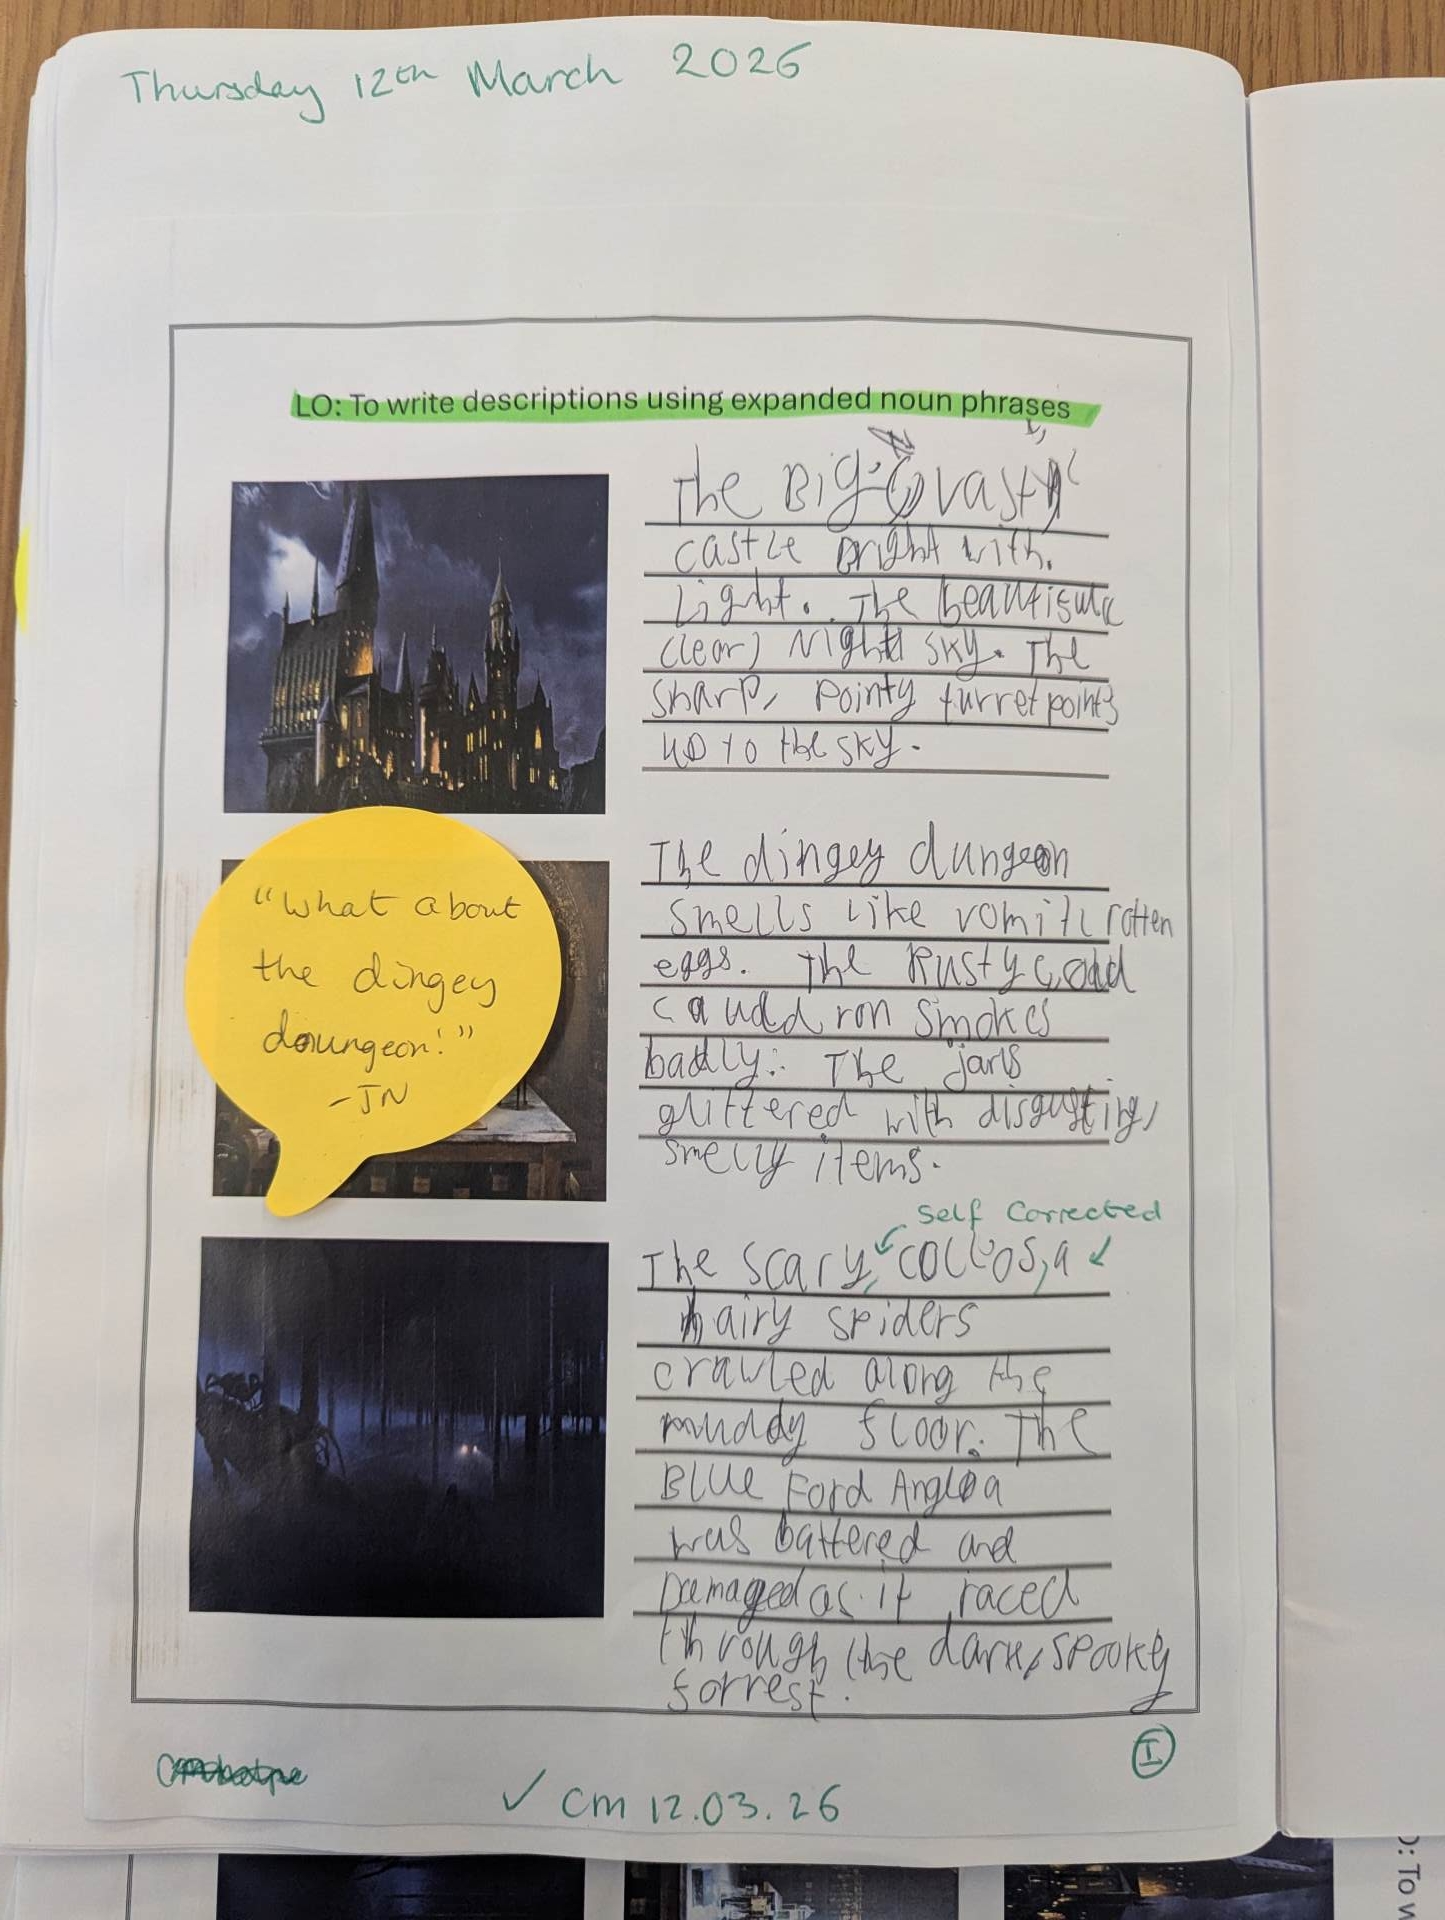 Thursday 12th March 2026
LO: To write descriptions using expanded noun phrases
The Big, vast,
castle bright with
Light. The beautiful
clear) Night sky. The
sharp, pointy turret points
up to the sky.
"What about
the dingey
doungeon!"
-JN
The dingey dungeon
smells like vomit rotten
eggs. The Rusty, old
cauddron smokes
badly. The jars
glittered with disgusting,
smelly items.
Self Corrected
The scary, collos,a
hairy spiders
crawled along the
muddy floor. The
Blue Ford Anglea
was battered and
Damaged as it raced
through the dark, spooky
forrest.
I
✓ cm 12.03.26